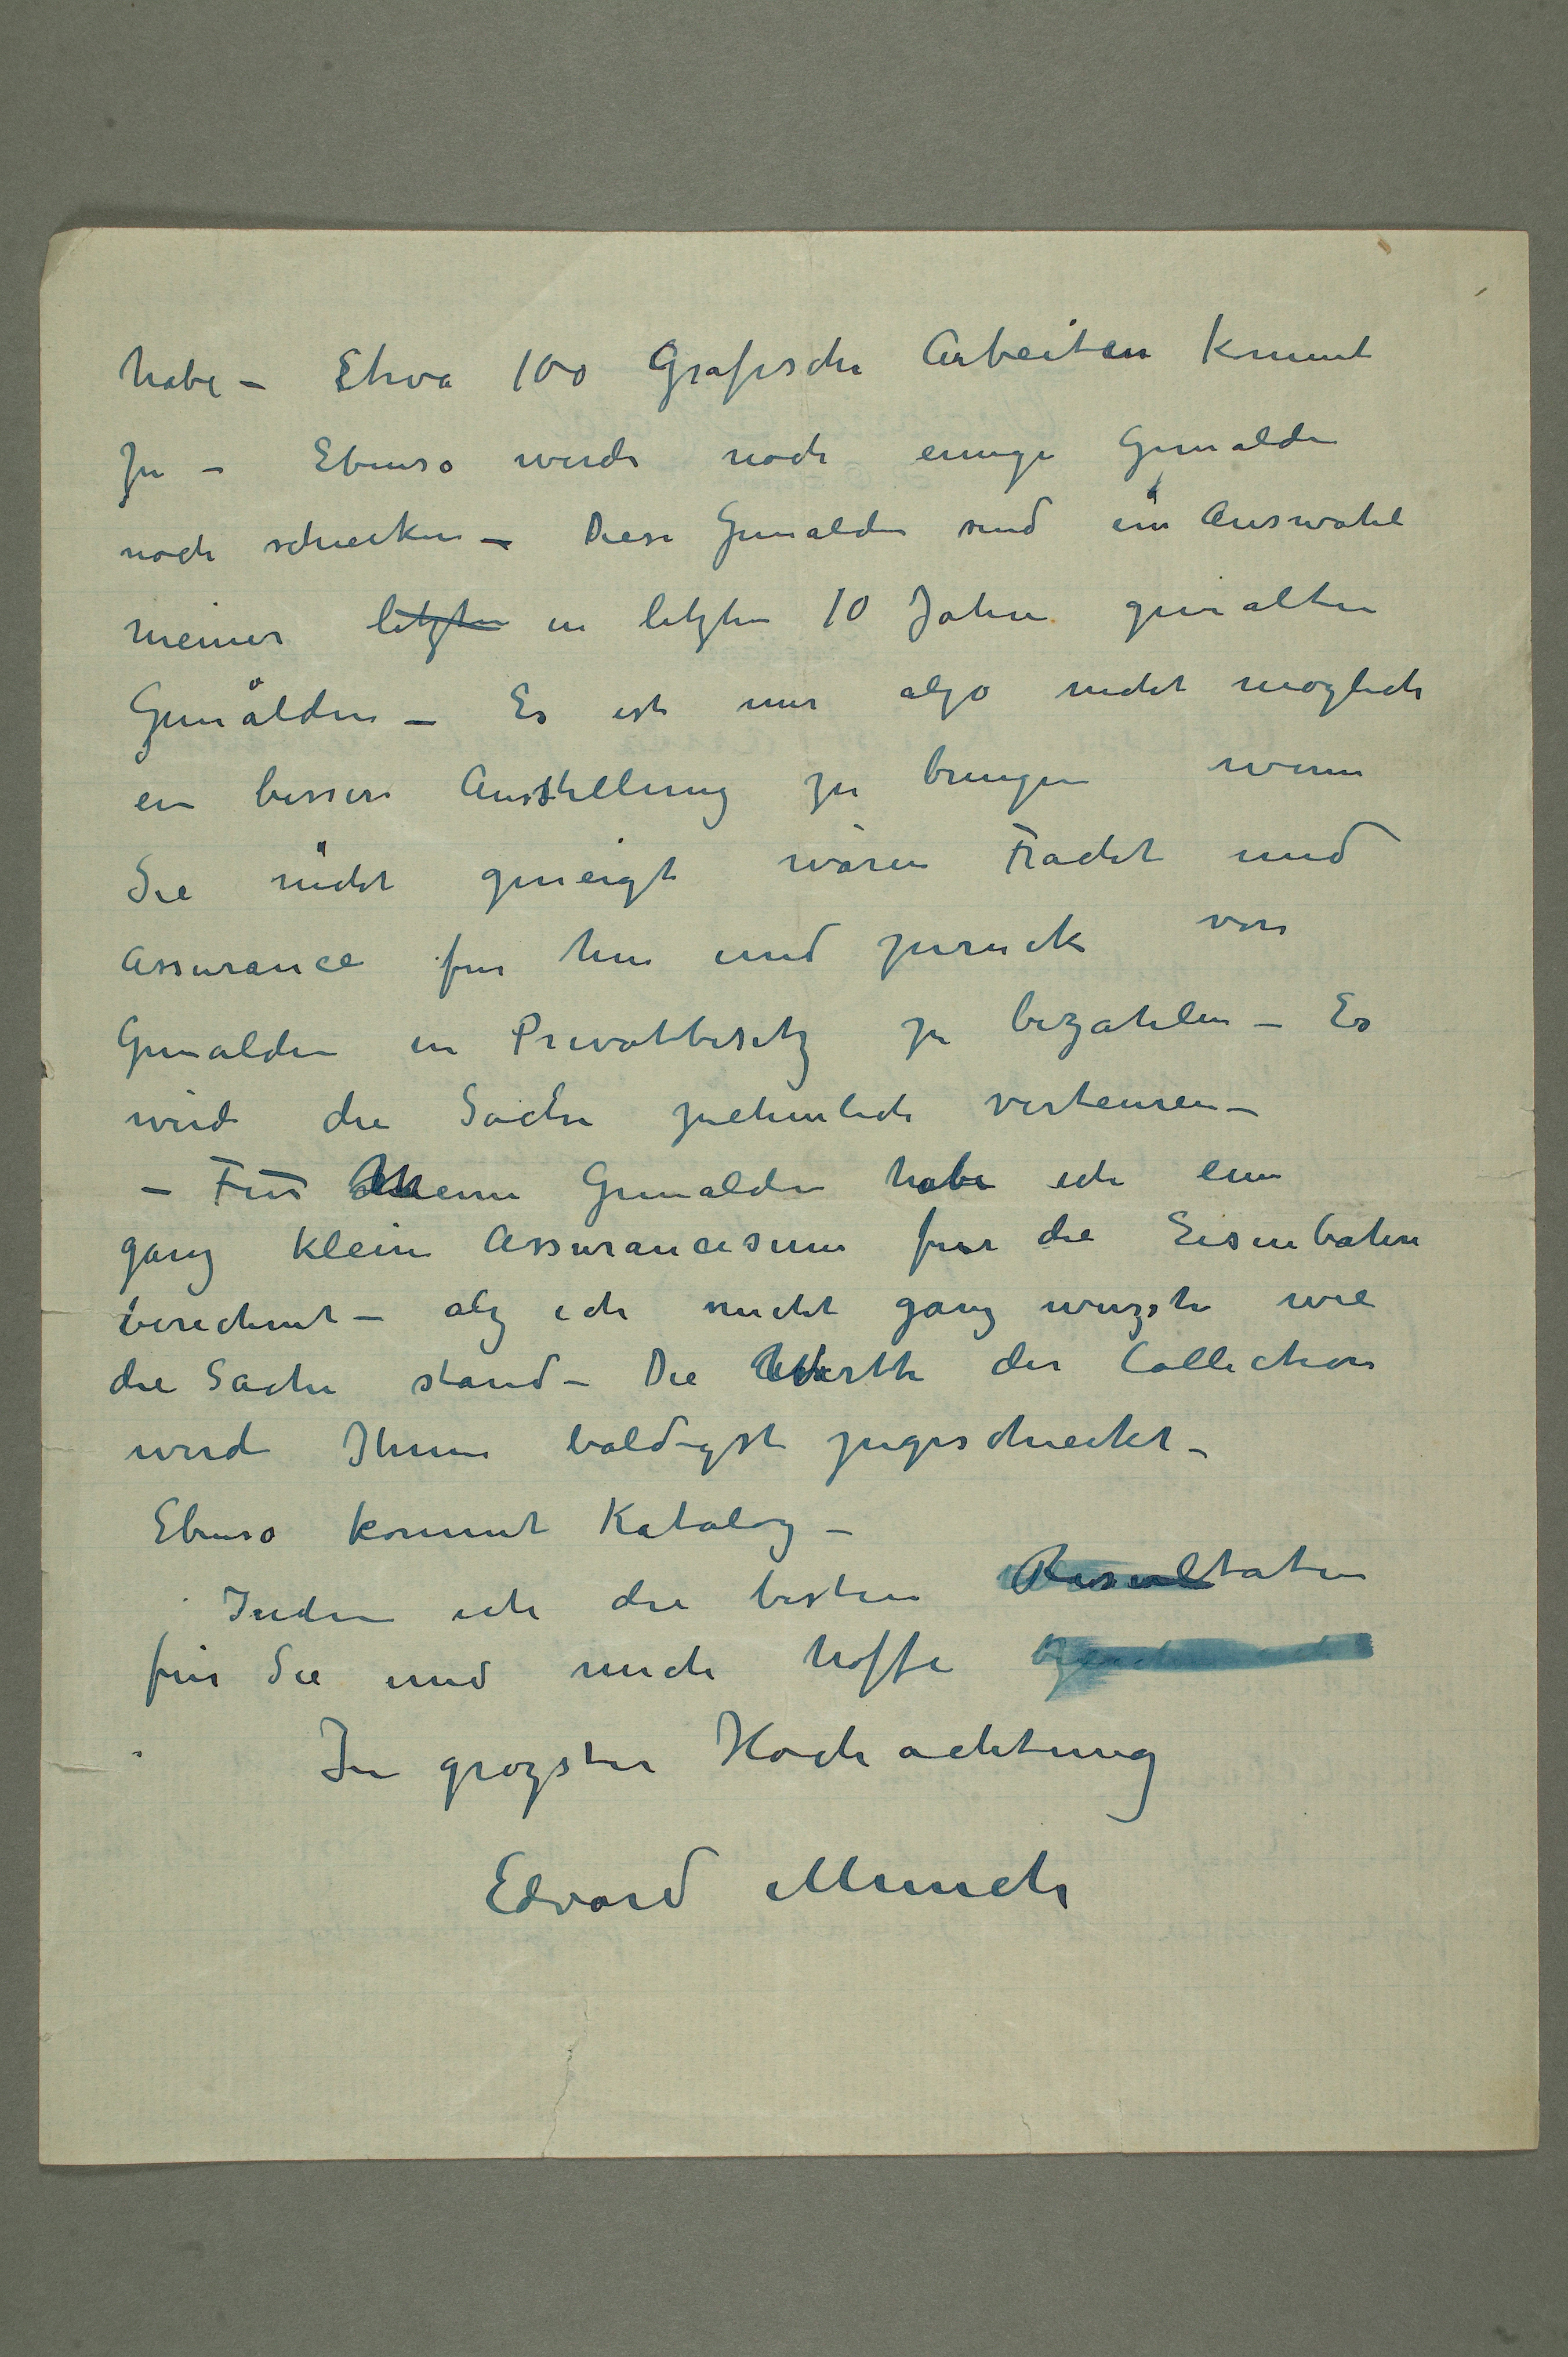 habe – Etwa 100 Grafische Arbeiten kommt
zu – Ebenso werde noch einige Gemälden
noch schicken – Diese Gemälden sind ein Auswahl
meiner letzten in letzten 10 Jahren gemalten
Gemålden – Es ist mir alzo nicht möglich
ein bessere Ausstellung zu bringen wenn
Sie nicht geneigt wären Fracht und
Assurance fur hin und zuruck von
Gemalden in Privatbesitz zu bezahlen – Es
wird die Sache ziehmlich verteuren –
– Fur Meine Gemalden habe ich eine
ganz kleine Assurancesum fur die Eisenbahn
berechnet – alz ich nicht ganz wuzste wie
die Sache stand – Die Werthe der Collection
wird Ihnen baldigst zugeschickt –
Ebenso kommt Katalog –
Inden ich die besten Resultaten
für Sie und mich hoffe
In grozster Hochachtung
Edvard Munch